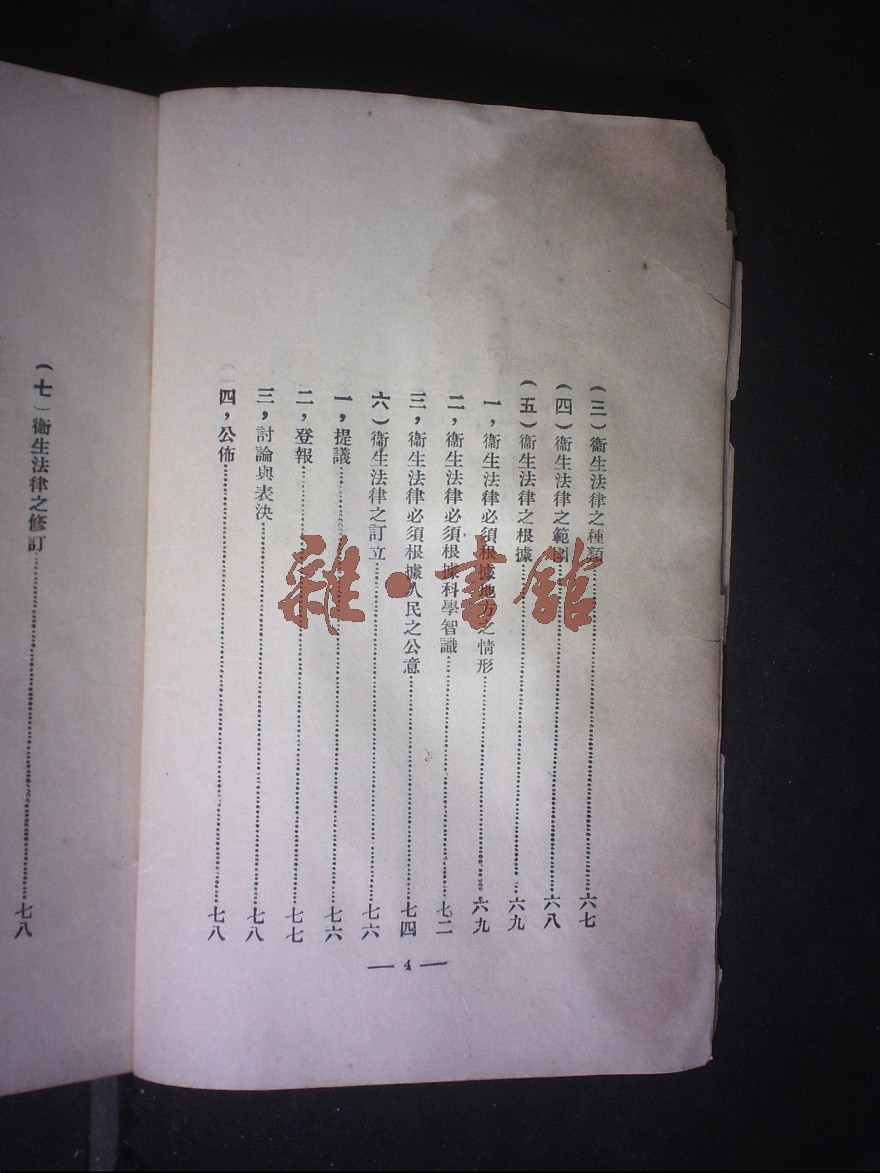 (三)衞生法律之種類……六七
(四)衞生法律之範圍……六八
(五)衞生法律之根據……六九
一，衞生法律必須根據地方之情形……六九
二，衞生法律必須根據科學智識……七二
三，衞生法律必須根據人民之公意……七四
六)衞生法律之訂立……七六
一，提議……七六
二，登報……七七
三，討論與表決……七八
四，公佈……七八
— 4 —
(七)衞生法律之修訂……七八
雜·書館